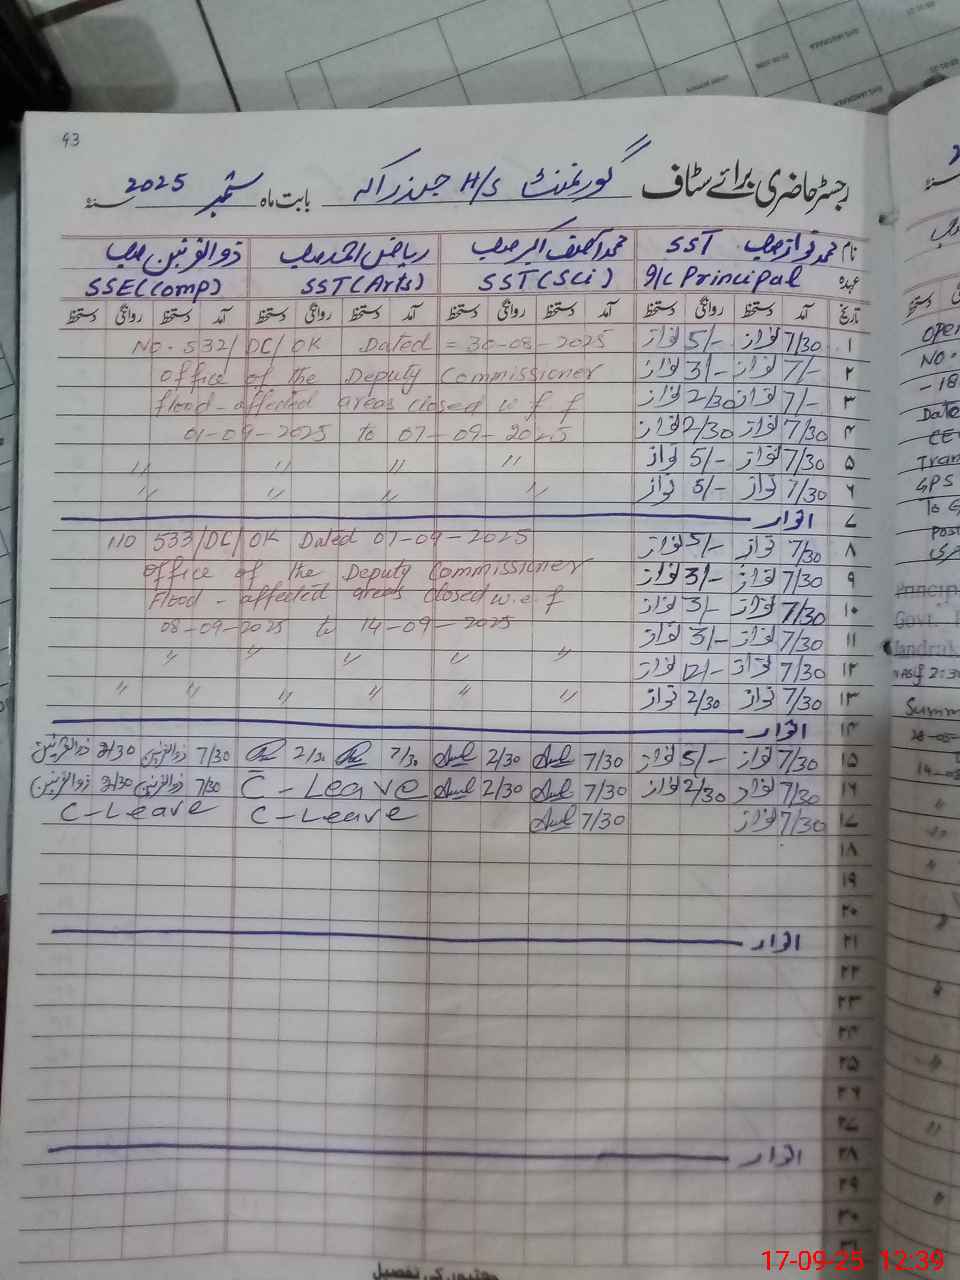 93
رجسٹر حاضری برائے سٹاف گورنمنٹ H/S جندراکہ بابت ماہ ستمبر 2025 سنہ
نام محمد نواز صاحب SST محمد آصف اکبر صاحب ریاض احمد صاحب ذوالقرنین صاحب
عہدہ I/C Principal SST (Sci) SST (Arts) SSE (Comp)
تاریخ آمد دستخط روانگی دستخط آمد دستخط روانگی دستخط آمد دستخط روانگی دستخط آمد دستخط روانگی دستخط
۱ 7/30 نواز 5/- نواز No. 532/DC/OK Dated = 30-08-2025
۲ 7/- نواز 3/- نواز Office of the Deputy Commissioner
۳ 7/- نواز 2/30 نواز flood-affected areas closed w.f f
۴ 7/30 نواز 2/30 نواز 01-09-2025 to 07-09-2025
۵ 7/30 نواز 5/- نواز " " " "
۶ 7/30 نواز 5/- نواز " " " "
۷ اتوار
۸ 7/30 نواز 5/- نواز NO 533/DC/OK Dated 07-09-2025
۹ 7/30 نواز 3/- نواز Office of the Deputy Commissioner
۱۰ 7/30 نواز 3/- نواز Flood-affected areas closed w.e.f
۱۱ 7/30 نواز 3/- نواز 08-09-2025 to 14-09-2025
۱۲ 7/30 نواز 12/- نواز " " " " "
۱۳ 7/30 نواز 2/30 نواز " " " " " "
۱۴ اتوار
۱۵ 7/30 نواز 5/- نواز 7/30 2/30 7/30 2/30 7/30 ذوالقرنین 2/30 ذوالقرنین
۱۶ 7/30 نواز 2/30 نواز 7/30 2/30 C-Leave 7/30 ذوالقرنین 2/30 ذوالقرنین
۱۷ 7/30 نواز 7/30 C-Leave C-Leave
۱۸
۱۹
۲۰
۲۱ اتوار
۲۲
۲۳
۲۴
۲۵
۲۶
۲۷
۲۸ اتوار
۲۹
۳۰
۳۱
چھٹیوں کی تفصیل
No.
-18
Date
Tran
GPS
To
Post
Princip
Govt.
Jandrak
Summ
28-05-
17-09-25 12:39